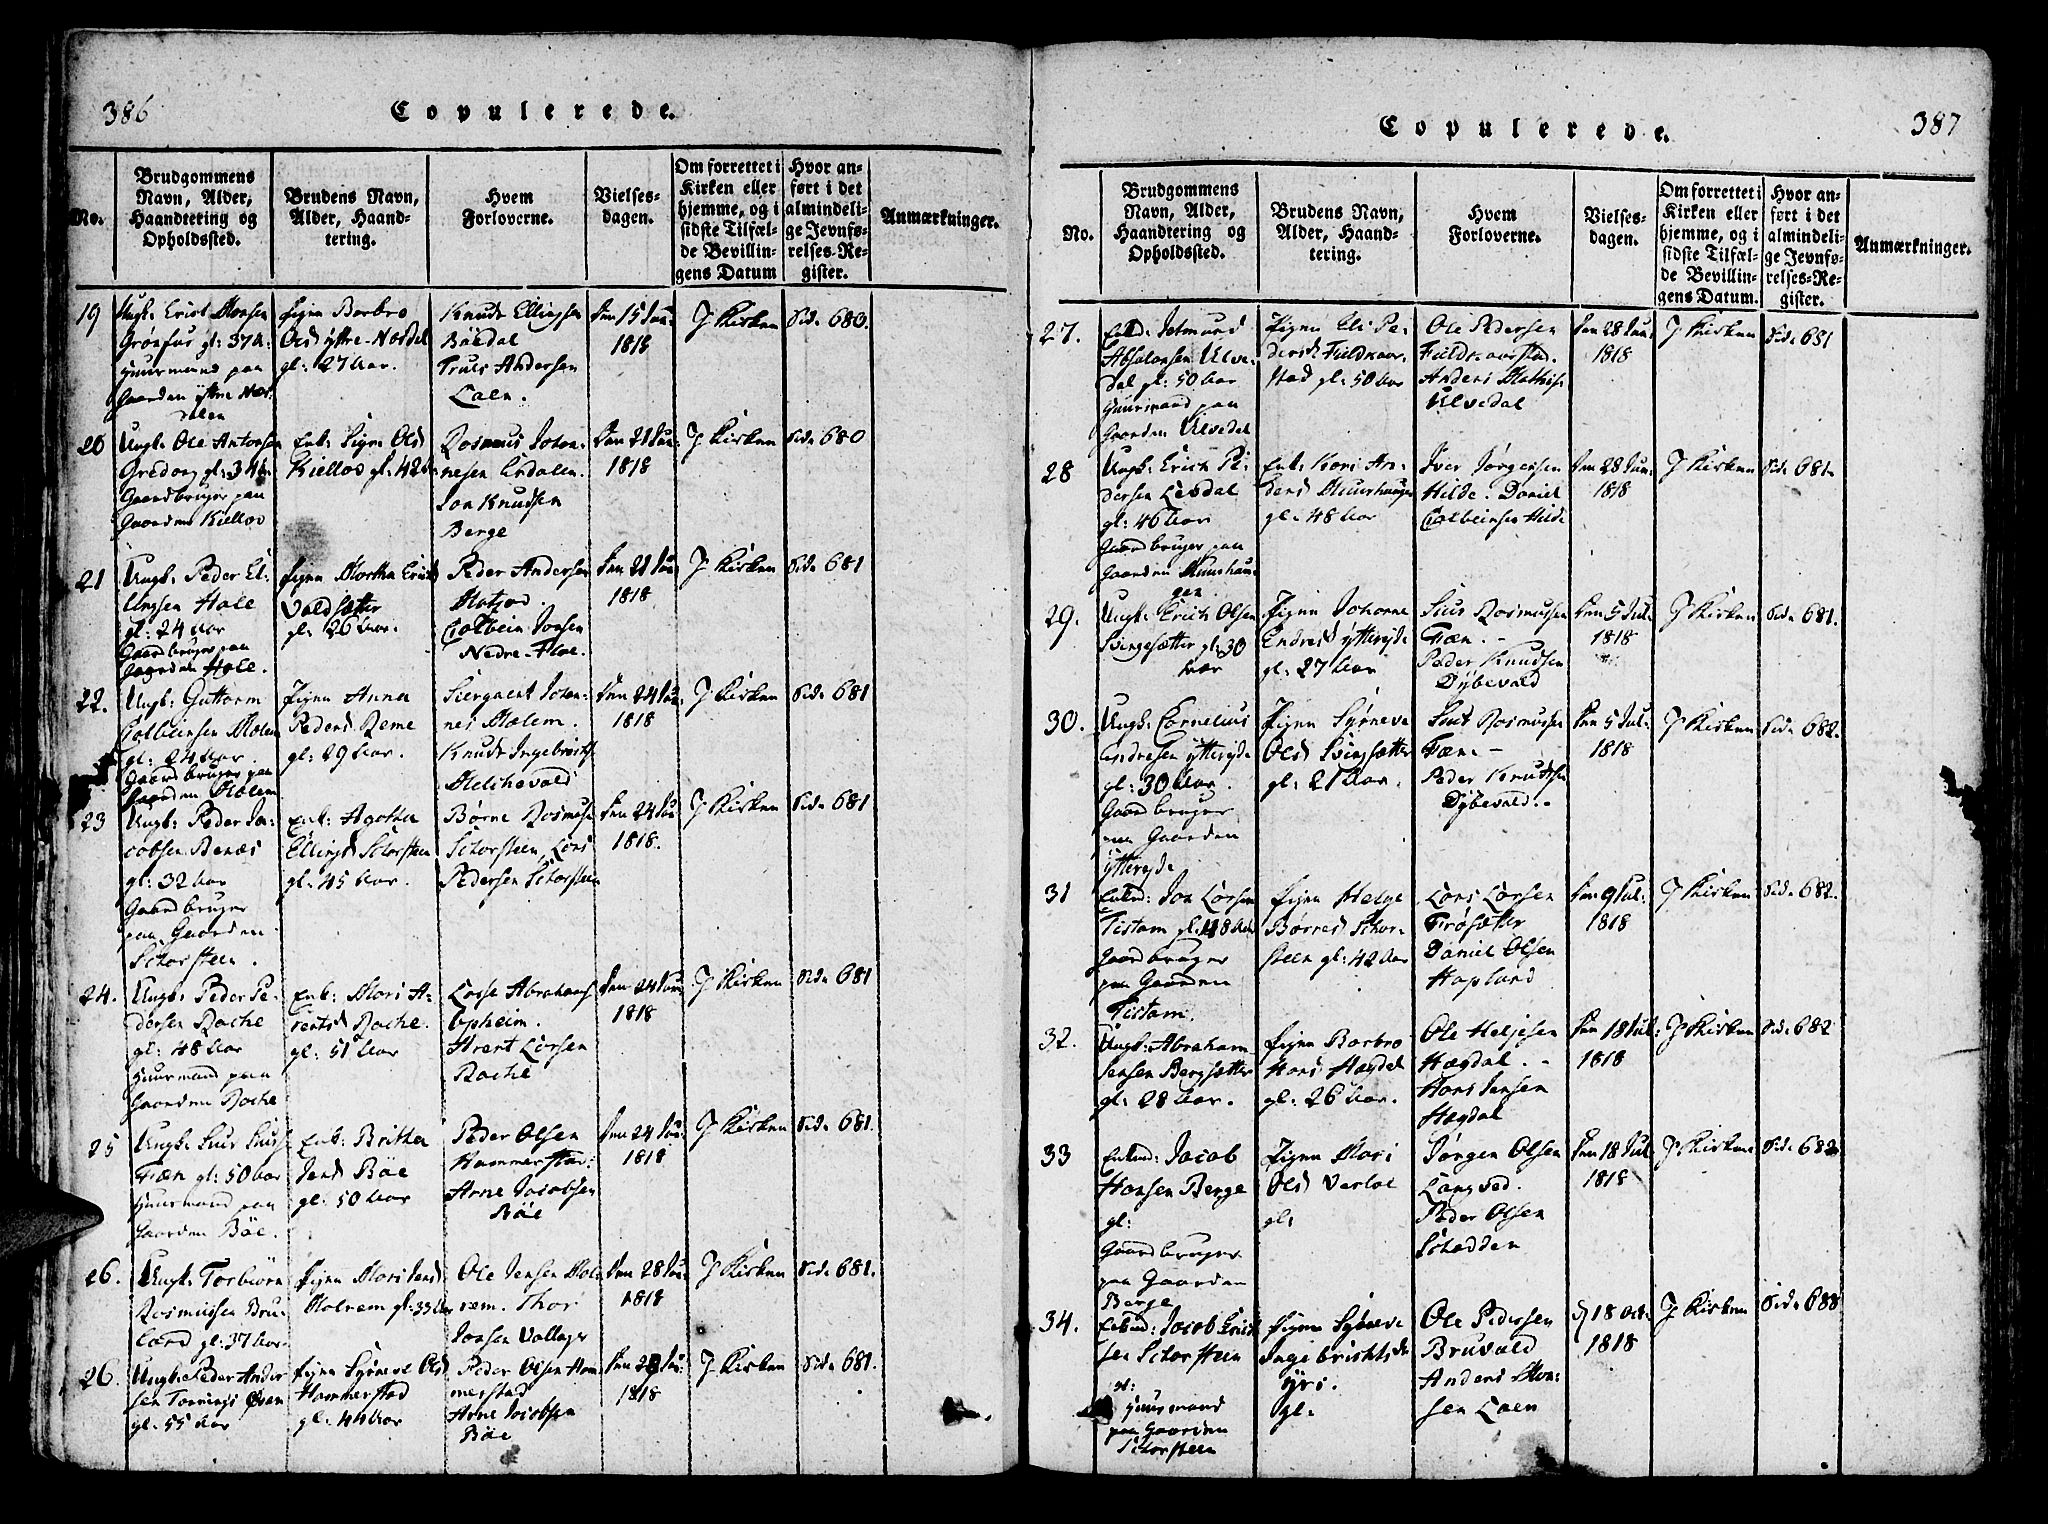 386
Copulerede.
No.
Brudgommens
Navn, Alder,
Haandtering og
Opholdssted.
Brudens Navn,
Alder, Haand-
tering.
Hvem
Forloverne.
Vielses-
dagen.
Om forrettet i
Kirken eller
hjemme, og i
sidste Tilfæl-
de Bevillin-
gens Datum
Hvor an-
ført i det
almindeli-
ge Jevnfø-
relses-Re-
gister.
Anmærkninger.
19
Ungk: Erich Monsen
Grönfur gl: 37 A.
Huusmand paa
Gaarden ÿttre Næs-
dalen
Pigen Borbro
Olsd ÿttre-Næsdal
gl: 27 Aar.
Knud Ellingsen
Böedal
Truls Andersen
Loen.
Den 15 Jun:
1818
J Kirken
Side 680.
20
Ungk: Ole Antonsen
Gredog gl: 34
Gaardbruger paa
Gaarden Kiellos
Enk: Signe Olsd
Kiellos gl: 42
Rasmus Johan-
nesen Erdalen
Jon Knudsen
Berge
Den 21 Jun:
1818
J Kirken
Side 680
21
Ungk: Peder El-
lingsen Hole
gl: 24 Aar
Gaardbruger paa
Gaarden Hole.
Pigen Martha Ericsd
Voldsætter
gl: 26 Aar.
Peder Andersen
Colbein Jonsen
Nedre-Floe.
Den 21 Jun
1818
J Kirken
Side 681
22.
Ungk: Guttorm
Colbeinsen Molem
gl: 24 Aar.
Gaardbruger paa
Gaarden Molem
Pigen Anna
Pedersd Reme
gl: 29 Aar.
Siergient Johan-
nes Mælem.
Knud Ingebrigts
Melchevold
Den 24 Jun
1818
J Kirken
Side 681
23
Ungk: Peder Ja-
cobsen Renæs
gl: 32 Aar
Gaardbruger
paa Gaarden
Schorsteen.
Enk: Agotha
Ellingsd Schorsteen
gl: 45 Aar.
Börne Rasmus
Schorsteen, Lars
Pedersen Schorsteen
Den 24 Jun
1818.
J Kirken
Side 681
24.
Ungk: Peder Pe-
dersen Rache
gl: 48 Aar
Huusmand paa
Gaarden Rache
Enk: Mari A-
rentsd Rache.
gl: 51 Aar
Losse Abrahams
Opheim.
Arent Larsen
Rache
Den 24 Jun
1818
J Kirken
Side 681
25
Ungk: Siur Siurs
Fæn gl: 50 Aar
Huusmand paa
Gaarden Böe.
Enk: Britha
Jensd Böe
gl: 50 Aar
Peder Olsen
Hammerstad:
Arne Jacobsen
Böe
Den 24 Jun:
1818
J Kirken
Side 681.
26.
Ungk: Torbiörn
Rasmussen Bru-
land gl: 37 Aar.
Pigen Mari Jensd
Molrem gl: 33 Aar
Ole Jensen Mol-
rem. Thor
Jonsen Vollager
Den 28 Jun
1818
J Kirken
Side 681.
26.
Ungk: Peder Ander
sen Tonnings
gl: 55 Aar
Pigen Syneve Olsd
Hammerstad
gl: 44 Aar
Peder Olsen Ham
merstad
Arne Jacobsen
Böe
Den 28 Jun:
1818
J Kirken
Side 681.
387
Copulerede.
No.
Brudgommens
Navn, Alder,
Haandtering og
Opholdssted.
Brudens Navn,
Alder, Haand-
tering.
Hvem
Forloverne.
Vielses-
dagen.
Om forrettet i
Kirken eller
hjemme, og i
sidste Tilfæl-
de Bevillin-
gens Datum.
Hvor an-
ført i det
almindeli-
ge Jevnfø-
relses-Re-
gister.
Anmærkninger.
27.
Enkd: Jetmund
Absalonsen Ulve-
dal gl: 50 Aar
Huusmand paa
Gaarden Ulvedal
Pigen Eli Pe-
dersd Fieldkaar-
stad gl: 50 Aar
Ole Pedersen
Fieldkaarstad.
Anders Mathis
Ulvedal
Den 28 Jun:
1818
J Kirken
Side 681
28
Ungk: Erich Pe-
dersen Lesdal
gl: 46 Aar
Gaardbruger paa
Gaarden Muurhau-
gen
Enk: Kari An-
dersd Muurhaugen
gl: 48 Aar
Iver Jørgensen
Hilde. Daniel
Colbeinsen Hilde
Den 28 Jun:
1818
J Kirken
Side 681.
29.
Ungk: Erich Olsen
Svingesætter gl: 30
Aar
Pigen Johanne
Endresd ÿtterÿde
gl: 27 Aar
Siur Rasmusen
Fæn. -
Peder Knudsen
Dÿbevald
Den 5 Jul:
1818
J Kirken
Side 681.
30.
Ungk: Cornelius
Endresen ÿtterÿde
gl: 30 Aar.
Gaardbruger
paa Gaarden
ÿtterÿde
Pigen Sÿneve
Olsd Svingsætter
gl: 21 Aar.
Siur Rasmusen
Fæn -
Peder Knudsen
Dÿbevald.-
Den 5 Jul-
1818
J Kirken
Side 682.
31
Enkd: Jon Larsen
Tistam gl: 48 Aar
Gaardbruger
paa Gaarden
Tistam.
Pigen Helge
Børnesd Schor-
steen gl: 42 Aar
Lars Larsen
Frösætter
Daniel Olsen
Hopland
Den 9 Jul:
1818
J Kirken
Side 682.
32.
Ungk: Abraham
Jensen Bergsætter
gl: 28 Aar.
Pigen Borbro
Hansd Hægdal
gl: 26 Aar.
Ole Heljesen
Hægdal. -
Hans Jensen
Hægdal
Den 18 Jul:
1818
J Kirken
Side 682
33
Enkmd: Jacob
Hansen Berge
gl:
Gaardbruger
paa Gaarden
Berge
Pigen Mari
Olsd Verloe
gl:
Jørgen Olsen
Langsed.
Peder Olsen
Schadden
Den 18 Jul
1818
J Kirken
Side 682
34.
Enkmd: Jacob Erich
sen Schorsteen
gl:
Huusmand
paa Gaarden
Schorsteen
Pigen Sÿneve
Ingebrichtsda
ÿri.
gl:
Ole Pedersen
Bruvold
Anders Mon-
sen Loen
d 18 Oct:
1818
J Kirken
Side 688